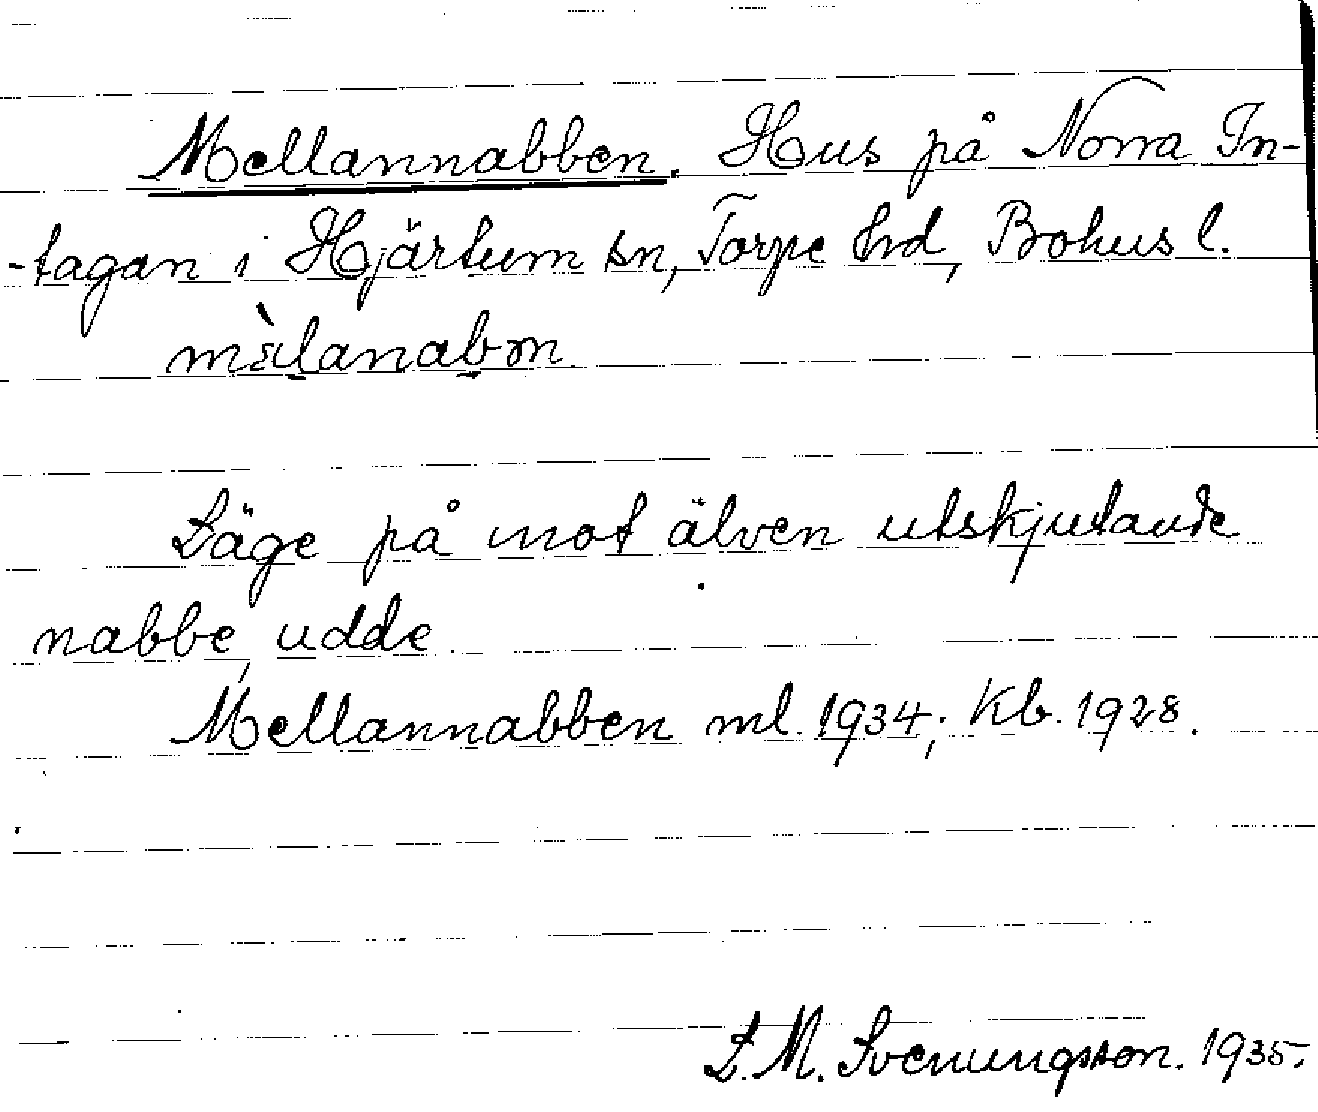 Mellannabben. Hus på Norra In-
-tagan i Hjärtum sn, Torpe hrd, Bohus l.
Läge på mot älven utskjutande
nabbe, udde.
Mellannabben ml. 1934; Kb. 1928.
L. M. Svenungsson. 1935.